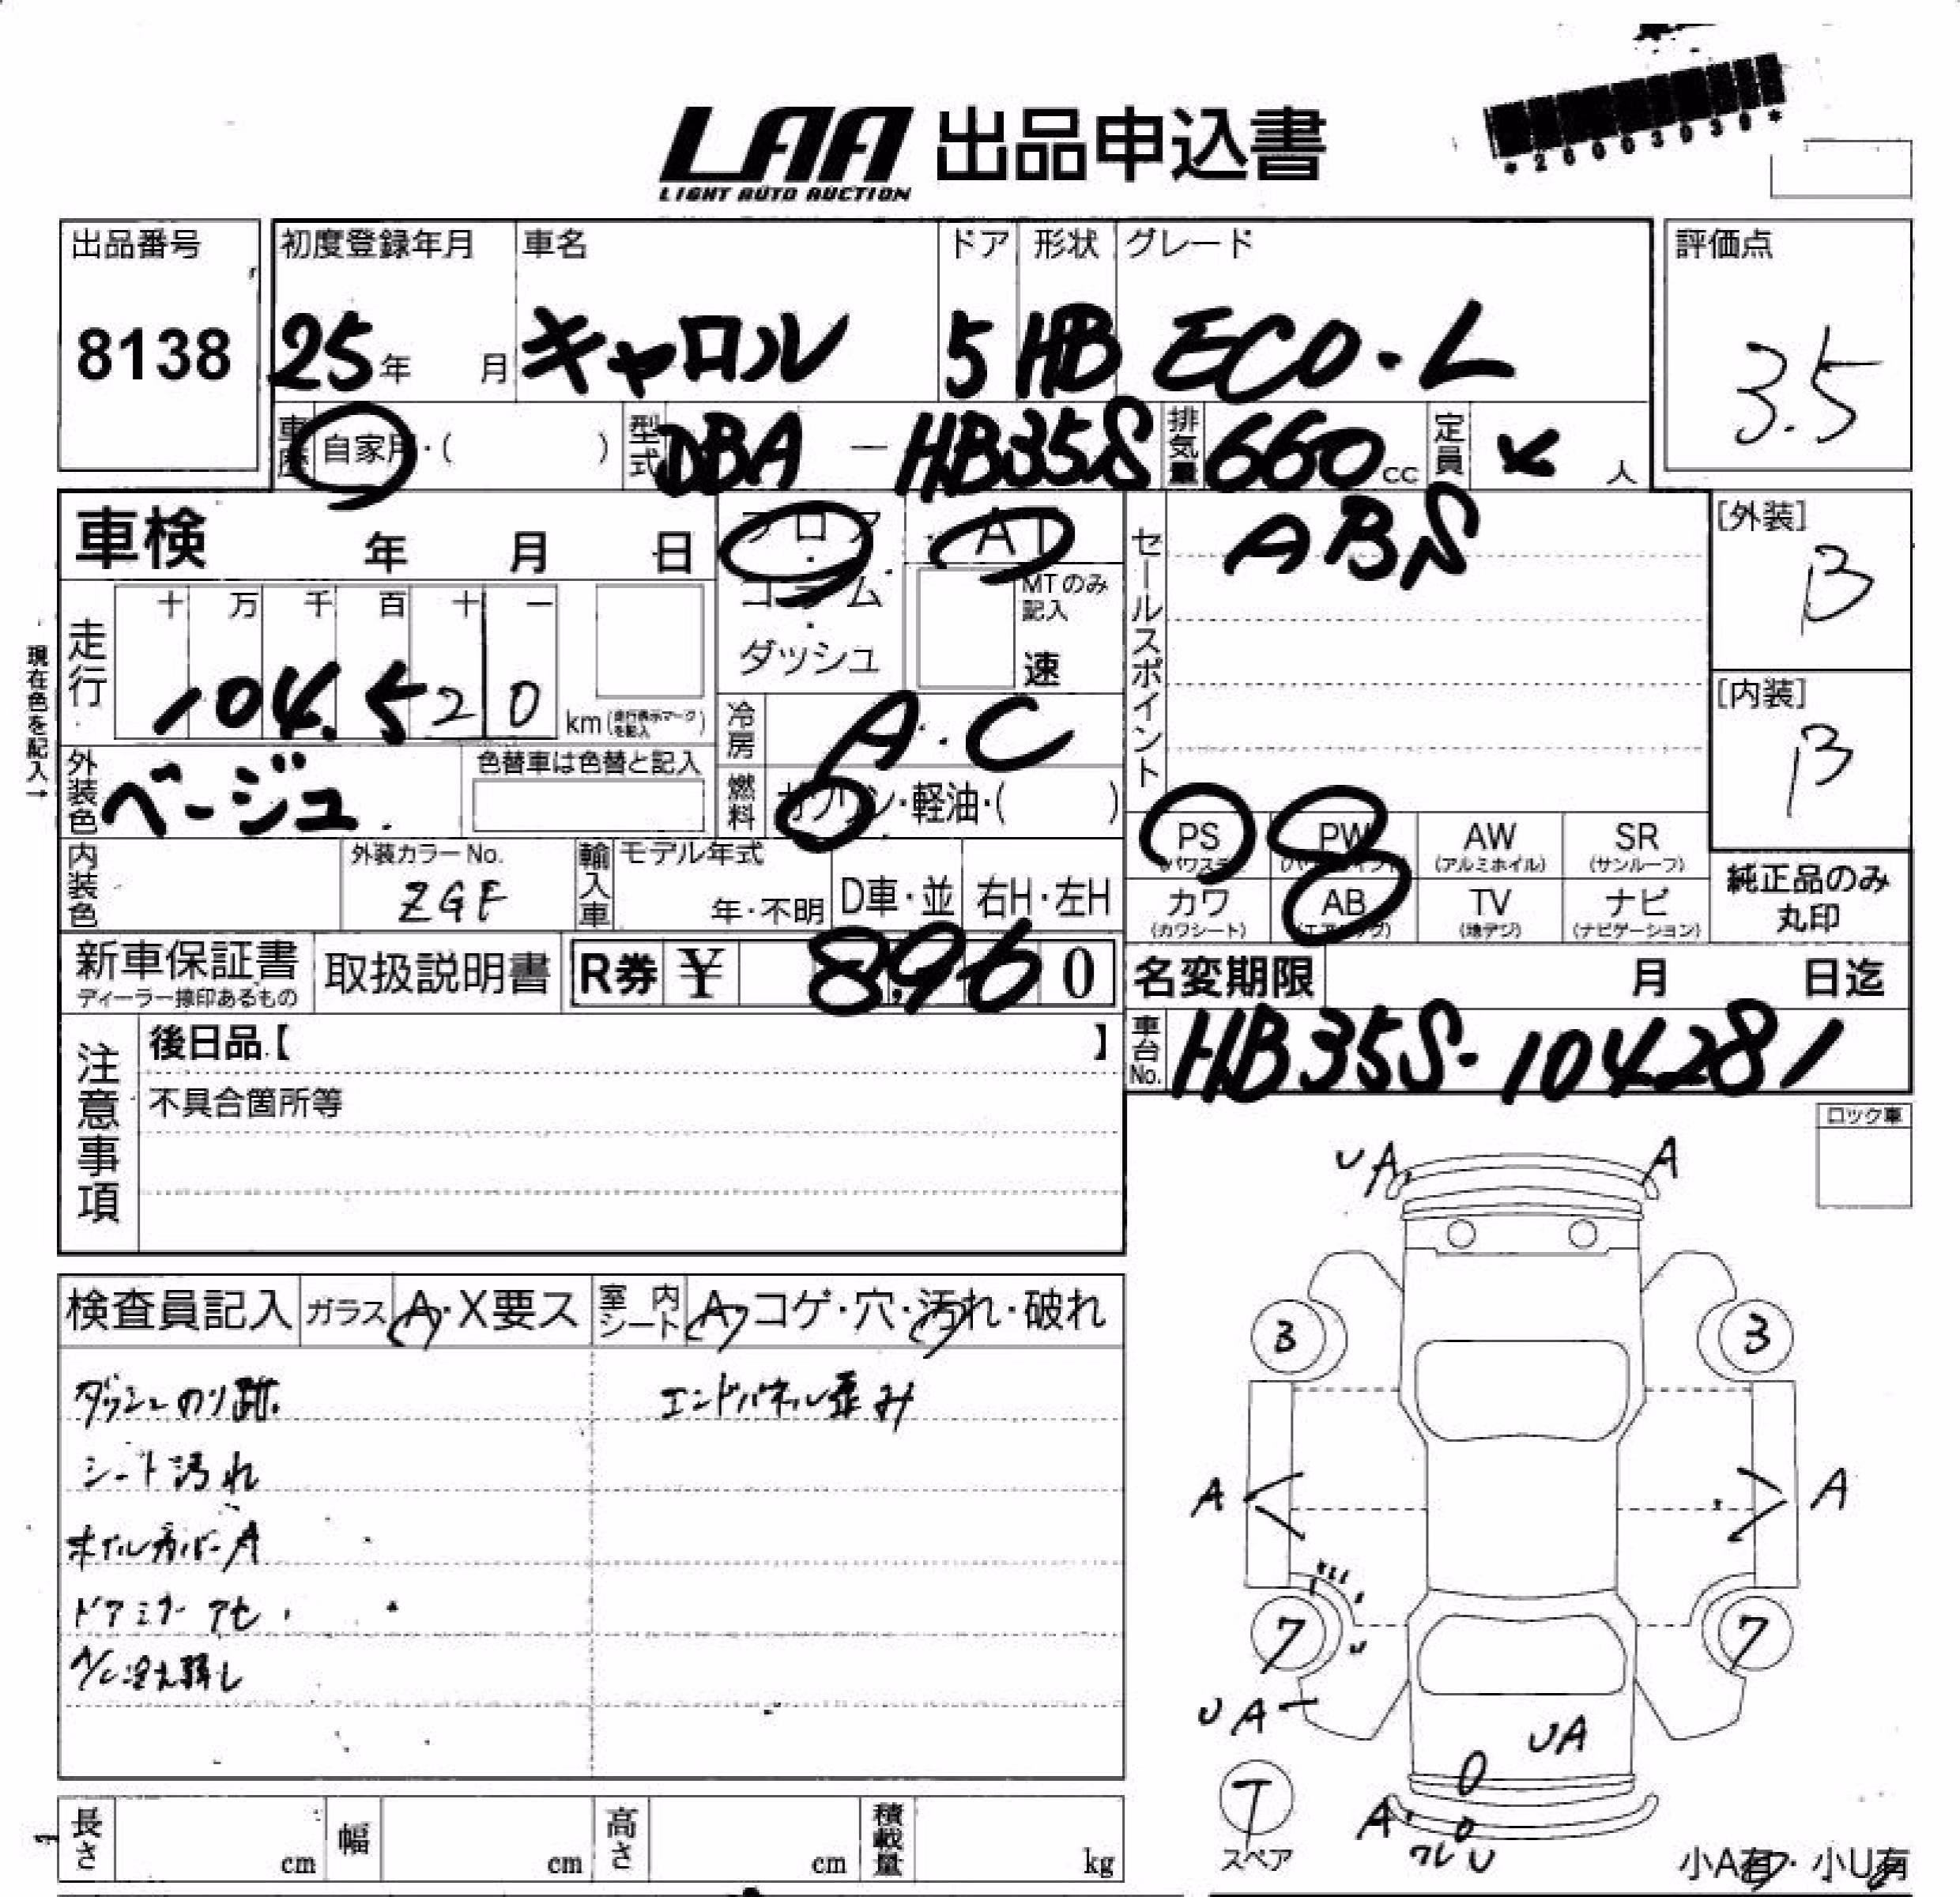 LAA 出品申込書
LIGHT AUTO AUCTION
*26003030*
出品番号 初度登録年月 車名 ドア 形状 グレード 評価点
8138 25年 月 キャロル 5 HB ECO-L 3.5
車歴 自家用・( ) 型式 DBA - HB35S 排気量 660cc 定員 4人
車検 年 月 日 フロア・コラム・ダッシュ AT
MTのみ記入 速
セールスポイント ABS
[外装] B
[内装] B
現在色を記入→
走行 十 万 千 百 十 一
104.520 km (走行表示マークを記入)
冷房 A・C
外装色 ベージュ 色替車は色替と記入
燃料 ガソリン・軽油・( )
PS (パワステ) PW AW (アルミホイル) SR (サンルーフ)
カワ (カワシート) AB (エアバッグ) TV (地デジ) ナビ (ナビゲーション)
純正品のみ丸印
内装色 外装カラーNo. ZGF 輸入車 モデル年式 年・不明 D車・並 右H・左H
新車保証書 取扱説明書 R券 ¥ 8,960
ディーラー捺印あるもの
名変期限 月 日迄
車台No. HB35S-104281
注意事項
後日品【 】
不具合箇所等
ロック車
UA A
検査員記入 ガラス A・X要ス 室内シート A・コゲ・穴・汚れ・破れ
3 3
ダッシュのり跡 エンドパネル歪み
シート汚れ
A A
ホイルカバーA
ドアミラーアセ
7 7
A/C冷え弱し
UA
UA
T
スペア
A
ワレ U
長さ cm 幅 cm 高さ cm 積載量 kg
小A有・小U有